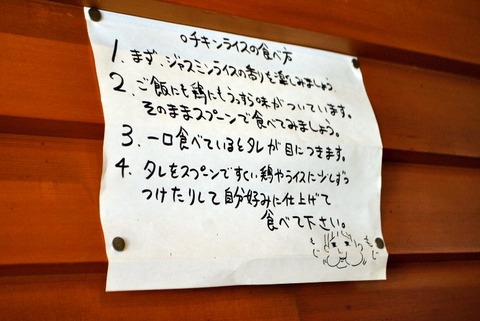 ○チキンライスの食べ方
1. まず、ジャスミンライスの香りを楽しみましょう
2. ご飯にも鶏にもうっすら味がついています。
そのままスプーンで食べてみましょう。
3. 一口食べているとタレが目につきます。
4. タレをスプーンですくい鶏やライスに少しずつ
つけたりして自分好みに仕上げて
食べて下さい。
もじ
もじ